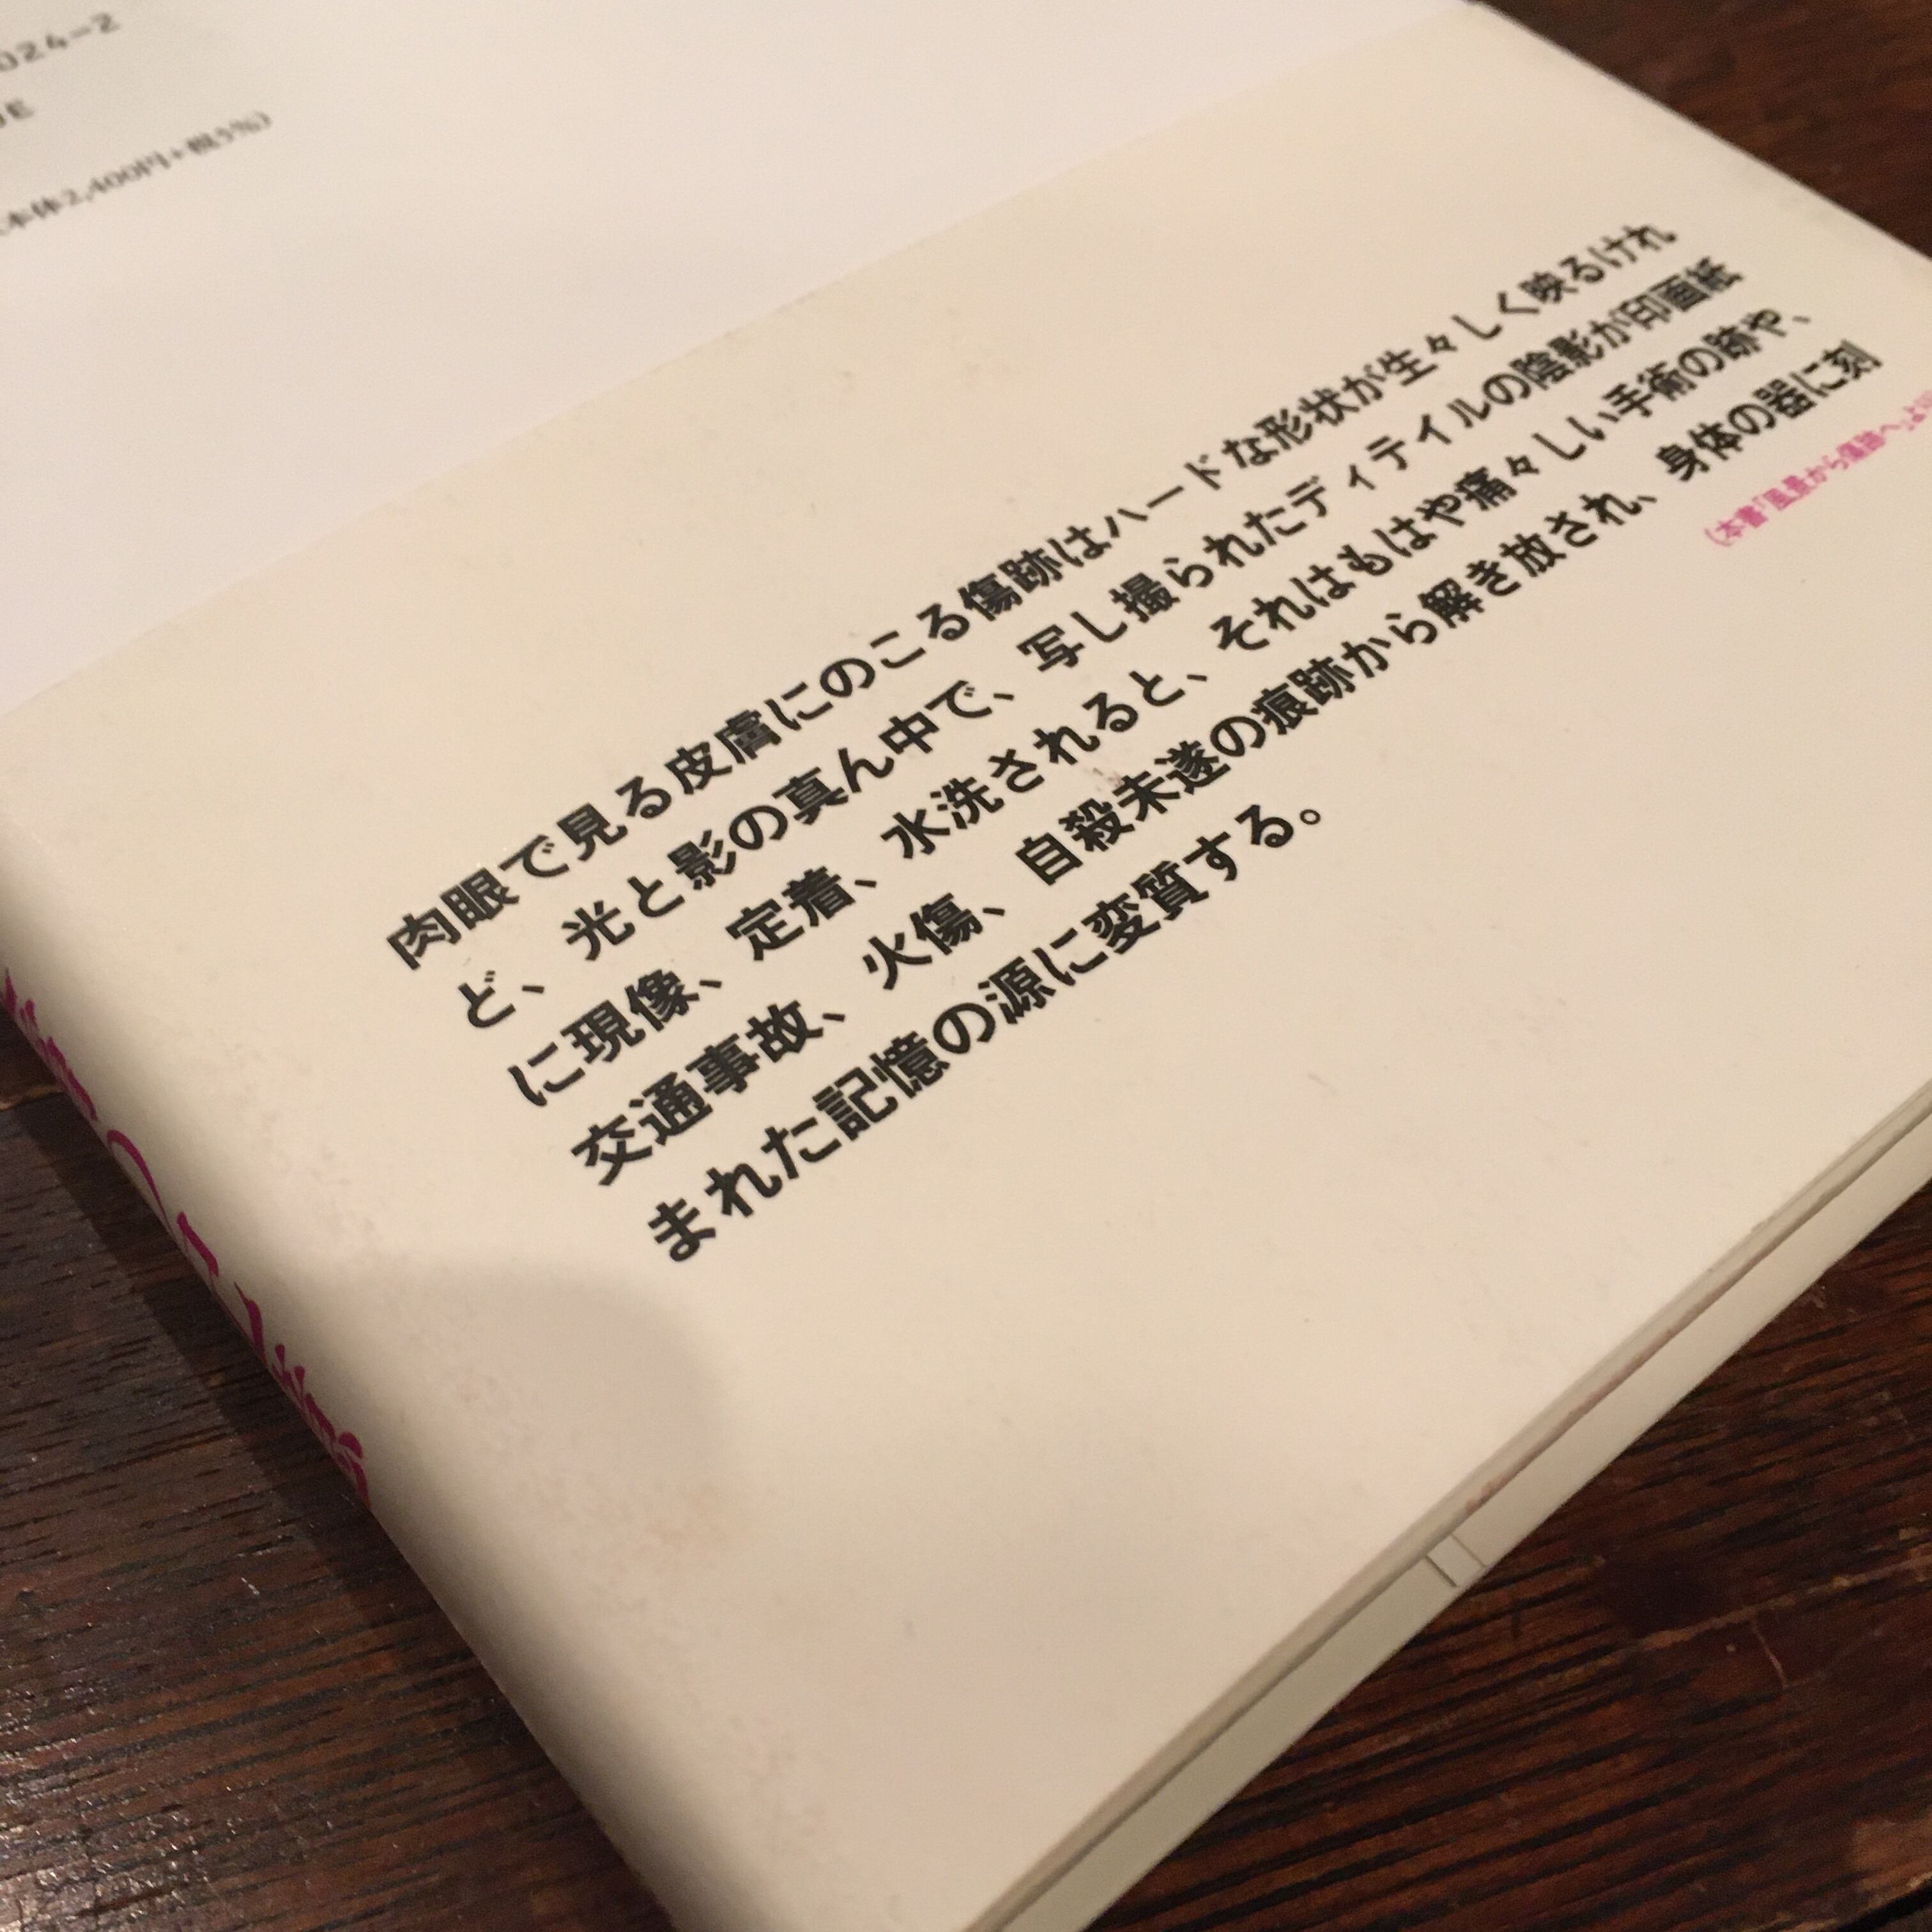 024-2
本体2,400円+税5%)
肉眼で見る皮膚にのこる傷跡はハードな形状が生々しく映るけれ
ど、光と影の真ん中で、写し撮られたディテイルの陰影が印画紙
に現像、定着、水洗されると、それはもはや痛々しい手術の跡や、
交通事故、火傷、自殺未遂の痕跡から解き放され、身体の器に刻
まれた記憶の源に変質する。
(本書「風景から傷跡へ」より